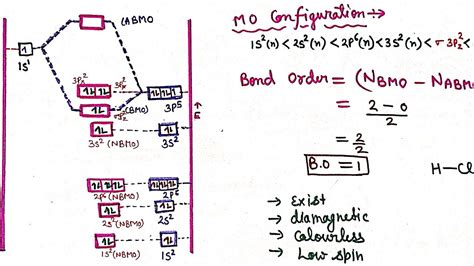 (ABMO
1S¹
3Px² 3Py²
3P⁵
(BMO)
3S² (NBMO)
3S²
2P⁶(NBMO)
2P⁶
2S²(NBMO)
2S²
1S²(NBMO)
1S²
E
MO Configuration:→
1S²(n)<2S²(n)<2P⁶(n)<3S²(n)<σ3Pz²<
Bond Order = (NBMO - NABM
= 2-0
2
= 2
2
B.O = 1
H-Cl
→ Exist
→ diamagnetic
→ Colourless
→ Low spin